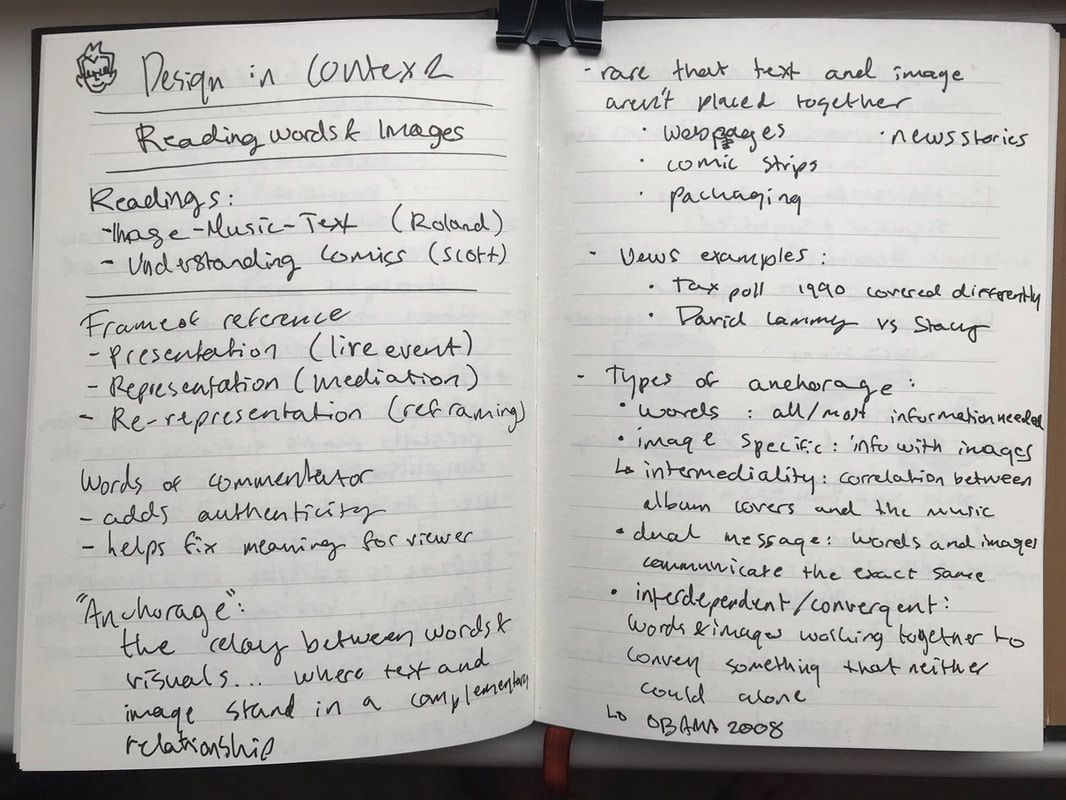 Design in Context 2
Reading words & Images
Readings:
- Image-Music-Text (Roland)
- Understanding Comics (Scott)
Frame of reference
- Presentation (live event)
- Representation (mediation)
- Re-representation (reframing)
Words of commentator
- adds authenticity
- helps fix meaning for viewer
"Anchorage":
the relay between words &
visuals... where text and
image stand in a complementary
relationship
- rare that text and image
aren't placed together
· webpages · news stories
· comic strips
· packaging
- News examples:
· Tax poll 1990 covered differently
· David Lammy vs Stacy
- Types of anchorage:
· words : all/most information needed
· image specific: info with images
↳ intermediality: correlation between
album covers and the music
· dual message: words and images
communicate the exact same
· interdependent/convergent:
words & images working together to
convey something that neither
could alone
↳ OBAMA 2008